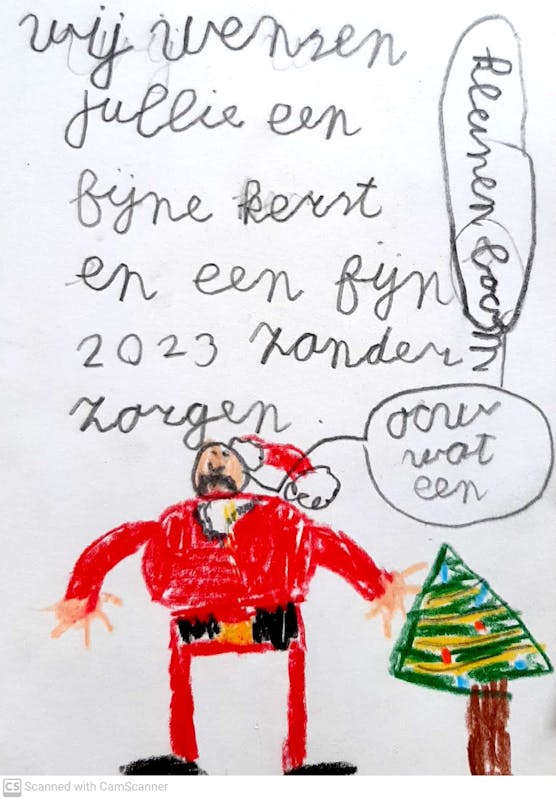 wij wensen
jullie een
fijne kerst
en een fijn
2023 zonder
zorgen
wat
een
kleinen boom
Scanned with CamScanner